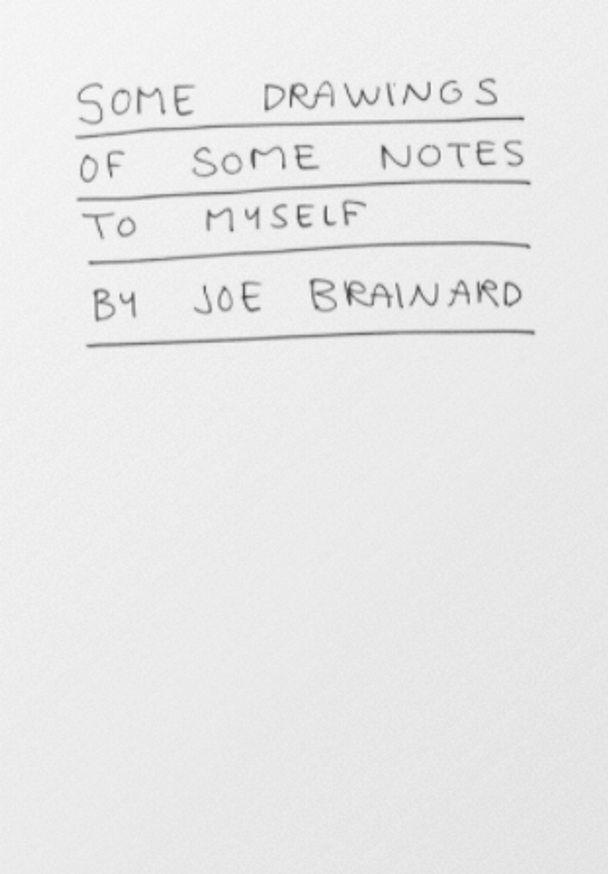 SOME DRAWINGS
OF SOME NOTES
TO MYSELF
BY JOE BRAINARD